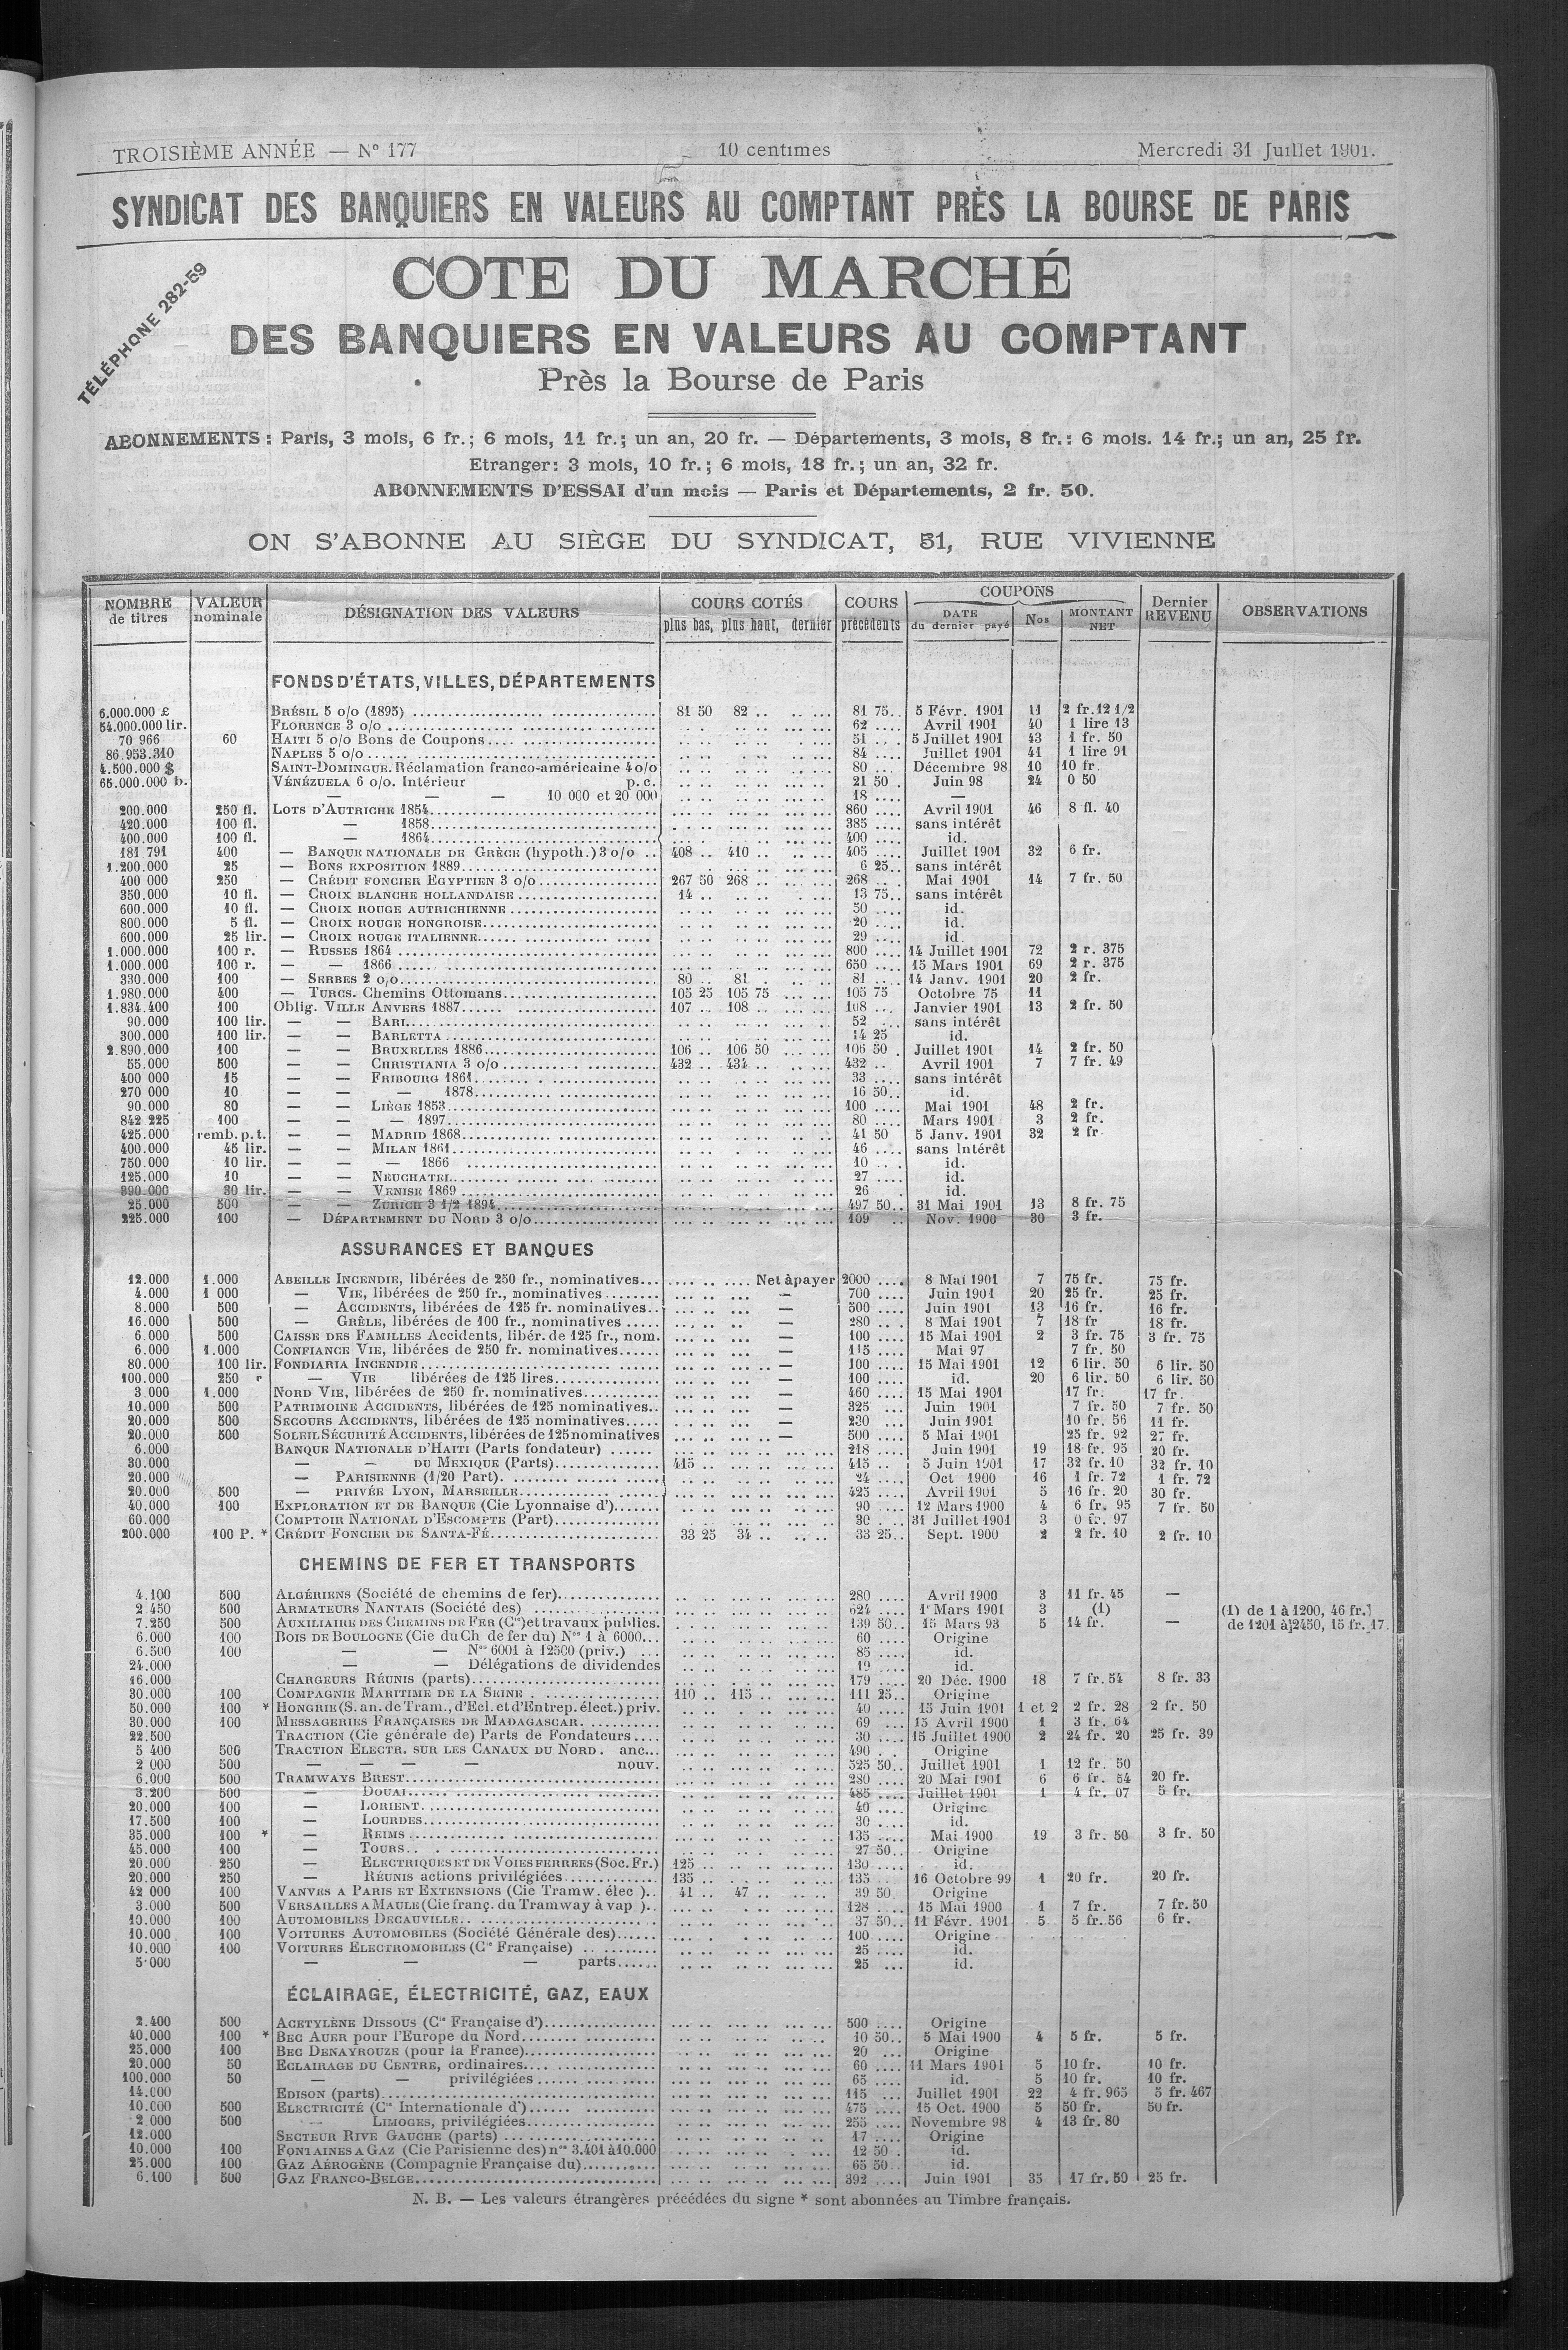 TROISIÈME ANNÉE — N° 177 10 centimes Mercredi 31 Juillet 1901.
SYNDICAT DES BANQUIERS EN VALEURS AU COMPTANT PRÈS LA BOURSE DE PARIS
TÉLÉPHONE 282-59
COTE DU MARCHÉ
DES BANQUIERS EN VALEURS AU COMPTANT
Près la Bourse de Paris
ABONNEMENTS : Paris, 3 mois, 6 fr.; 6 mois, 11 fr.; un an, 20 fr. — Départements, 3 mois, 8 fr.: 6 mois. 14 fr.; un an, 25 fr.
Etranger: 3 mois, 10 fr.; 6 mois, 18 fr.; un an, 32 fr.
ABONNEMENTS D'ESSAI d'un mois — Paris et Départements, 2 fr. 50.
ON S'ABONNE AU SIÈGE DU SYNDICAT, 51, RUE VIVIENNE
NOMBRE de titres VALEUR nominale DÉSIGNATION DES VALEURS COURS COTÉS plus bas, plus haut, dernier COURS précédents COUPONS DATE du dernier payé Nos MONTANT NET Dernier REVENU OBSERVATIONS
FONDS D'ÉTATS, VILLES, DÉPARTEMENTS
6.000.000 £ BRÉSIL 5 o/o (1895) 81 50 82 .. 81 75 5 Févr. 1901 11 2 fr. 12 1/2
54.000.000 lir. FLORENCE 3 o/o 62 Avril 1901 40 1 lire 13
70 966 60 HAITI 5 o/o Bons de Coupons 51 5 Juillet 1901 43 1 fr. 50
86.953.310 NAPLES 5 o/o 84 Juillet 1901 41 1 lire 91
4.500.000 $ SAINT-DOMINGUE. Réclamation franco-américaine 4 o/o 80 Décembre 98 10 10 fr.
65.000.000 b. VÉNÉZUELA 6 o/o. Intérieur p.c. 21 50 Juin 98 24 0 50
— — — 10 000 et 20 000 18 —
200.000 250 fl. LOTS D'AUTRICHE 1854 860 Avril 1901 46 8 fl. 40
420.000 100 fl. — 1858 385 sans intérêt
400.000 100 fl. — 1864 400 id.
181 791 400 — BANQUE NATIONALE DE GRÈCE (hypoth.) 3 o/o 408 .. 410 .. 405 Juillet 1901 32 6 fr.
1.200.000 25 — BONS EXPOSITION 1889 6 25 sans intérêt
400 000 250 — CRÉDIT FONCIER EGYPTIEN 3 o/o 267 50 268 .. 268 Mai 1901 14 7 fr. 50
350.000 10 fl. — CROIX BLANCHE HOLLANDAISE 14 .. 13 75 sans intérêt
600.000 10 fl. — CROIX ROUGE AUTRICHIENNE 50 id.
800.000 5 fl. — CROIX ROUGE HONGROISE 20 id.
600.000 25 lir. — CROIX ROUGE ITALIENNE 29 id.
1.000.000 100 r. — RUSSES 1864 800 14 Juillet 1901 72 2 r. 375
1.000.000 100 r. — — 1866 650 15 Mars 1901 69 2 r. 375
330.000 100 — SERBES 2 o/o 80 .. 81 . 81 14 Janv. 1901 20 2 fr.
1.980.000 400 — TURCS. Chemins Ottomans 105 25 105 75 105 75 Octobre 75 11
1.834.400 100 Oblig. VILLE ANVERS 1887 107 .. 108 .. 108 Janvier 1901 13 2 fr. 50
90.000 100 lir. — — BARI 52 sans intérêt
300.000 100 lir. — — BARLETTA 14 25 id.
2.890.000 100 — — BRUXELLES 1886 106 .. 106 50 106 50 Juillet 1901 14 2 fr. 50
55.000 500 — — CHRISTIANIA 3 o/o 432 .. 434 .. 432 Avril 1901 7 7 fr. 49
400 000 15 — — FRIBOURG 1861 33 sans intérêt
270 000 10 — — — 1878 16 50 id.
90.000 80 — — LIÈGE 1853 100 Mai 1901 48 2 fr.
842 225 100 — — — 1897 80 Mars 1901 3 2 fr.
425.000 remb. p. t. — — MADRID 1868 41 50 5 Janv. 1901 32 2 fr.
400.000 45 lir. — — MILAN 1861 46 sans Intérêt
750.000 10 lir. — — — 1866 10 id.
125.000 10 — — NEUCHATEL 27 id.
390.000 30 lir. — — VENISE 1869 26 id.
25.000 500 — — ZURICH 3 1/2 1894 497 50 31 Mai 1901 13 8 fr. 75
225.000 100 — DÉPARTEMENT DU NORD 3 o/o 109 Nov. 1900 30 3 fr.
ASSURANCES ET BANQUES
12.000 1.000 ABEILLE INCENDIE, libérées de 250 fr., nominatives Net à payer 2000 8 Mai 1901 7 75 fr. 75 fr.
4.000 1 000 — VIE, libérées de 250 fr., nominatives — 700 Juin 1901 20 25 fr. 25 fr.
8.000 500 — ACCIDENTS, libérées de 125 fr. nominatives — 500 Juin 1901 13 16 fr. 16 fr.
16.000 500 — GRÊLE, libérées de 100 fr., nominatives — 280 8 Mai 1901 7 18 fr 18 fr.
6.000 500 CAISSE DES FAMILLES Accidents, libér. de 125 fr., nom. — 100 15 Mai 1901 2 3 fr. 75 3 fr. 75
6.000 1.000 CONFIANCE VIE, libérées de 250 fr. nominatives — 115 Mai 97 7 fr. 50
80.000 100 lir. FONDIARIA INCENDIE — 100 15 Mai 1901 12 6 lir. 50 6 lir. 50
100.000 250 r — VIE libérées de 125 lires — 100 id. 20 6 lir. 50 6 lir. 50
3.000 1.000 NORD VIE, libérées de 250 fr. nominatives — 460 15 Mai 1901 17 fr. 17 fr.
10.000 500 PATRIMOINE ACCIDENTS, libérées de 125 nominatives — 325 Juin 1901 7 fr. 50 7 fr. 50
20.000 500 SECOURS ACCIDENTS, libérées de 125 nominatives — 230 Juin 1901 10 fr. 56 11 fr.
20.000 500 SOLEIL SÉCURITÉ ACCIDENTS, libérées de 125 nominatives — 500 5 Mai 1901 25 fr. 92 27 fr.
6.000 BANQUE NATIONALE D'HAITI (Parts fondateur) 218 Juin 1901 19 18 fr. 95 20 fr.
30.000 — — DU MEXIQUE (Parts) 415 .. 415 5 Juin 1901 17 32 fr. 10 32 fr. 10
20.000 — PARISIENNE (1/20 Part) 24 Oct 1900 16 1 fr. 72 1 fr. 72
20.000 500 — PRIVÉE LYON, MARSEILLE 425 Avril 1901 5 16 fr. 20 30 fr.
40.000 100 EXPLORATION ET DE BANQUE (Cie Lyonnaise d') 90 12 Mars 1900 4 6 fr. 95 7 fr. 50
60.000 COMPTOIR NATIONAL D'ESCOMPTE (Part) 30 31 Juillet 1901 3 0 fr. 97
200.000 100 P. * CRÉDIT FONCIER DE SANTA-FÉ 33 25 34 .. 33 25 Sept. 1900 2 2 fr. 10 2 fr. 10
CHEMINS DE FER ET TRANSPORTS
4.100 500 ALGÉRIENS (Société de chemins de fer) 280 Avril 1900 3 11 fr. 45 —
2.450 500 ARMATEURS NANTAIS (Société des) 624 1er Mars 1901 3 (1) (1) de 1 à 1200, 46 fr.
7.250 500 AUXILIAIRE DES CHEMINS DE FER (Cie) et travaux publics. 139 50 15 Mars 93 5 14 fr. — de 1201 à 2450, 15 fr. 17.
6.000 100 BOIS DE BOULOGNE (Cie du Ch de fer du) Nos 1 à 6000 60 Origine
6.500 100 — — Nos 6001 à 12500 (priv.) 85 id.
24.000 — — Délégations de dividendes 19 id.
16.000 CHARGEURS RÉUNIS (parts) 179 20 Déc. 1900 18 7 fr. 54 8 fr. 33
30.000 100 COMPAGNIE MARITIME DE LA SEINE 110 .. 115 .. 111 25 Origine
50.000 100 * HONGRIE (S. an. de Tram., d'Ecl. et d'Entrep. élect.) priv. 40 15 Juin 1901 1 et 2 2 fr. 28 2 fr. 50
30.000 100 MESSAGERIES FRANÇAISES DE MADAGASCAR 69 15 Avril 1900 1 3 fr. 64
22.500 TRACTION (Cie générale de) Parts de Fondateurs 30 15 Juillet 1900 2 24 fr. 20 25 fr. 39
5 400 500 TRACTION ELECTR. SUR LES CANAUX DU NORD. anc 490 Origine
2 000 500 — — — — nouv. 525 50 Juillet 1901 1 12 fr. 50
6.000 500 TRAMWAYS BREST 280 20 Mai 1901 6 6 fr. 54 20 fr.
3.200 500 — DOUAI 485 Juillet 1901 1 4 fr. 07 5 fr.
20.000 100 — LORIENT 40 Origine
17.500 100 — LOURDES 30 id.
35.000 100 * — REIMS 135 Mai 1900 19 3 fr. 50 3 fr. 50
45.000 100 — TOURS 27 50 Origine
20.000 250 — ELECTRIQUES ET DE VOIES FERREES (Soc. Fr.) 125 .. 130 id.
20.000 250 — RÉUNIS actions privilégiées 135 .. 135 16 Octobre 99 1 20 fr. 20 fr.
42 000 100 VANVES A PARIS ET EXTENSIONS (Cie Tramw. élec ) 41 .. 47 .. 39 50 Origine
3.000 500 VERSAILLES A MAULE (Cie franç. du Tramway à vap ) 128 15 Mai 1900 1 7 fr. 7 fr. 50
10.000 100 AUTOMOBILES DECAUVILLE 37 50 11 Févr. 1901 5 5 fr. 56 6 fr.
10.000 100 VOITURES AUTOMOBILES (Société Générale des) 100 Origine
10.000 100 VOITURES ELECTROMOBILES (Cie Française) 25 id.
5.000 — — — parts 25 id.
ÉCLAIRAGE, ÉLECTRICITÉ, GAZ, EAUX
2.400 500 ACETYLÈNE DISSOUS (Cie Française d') 500 Origine
40.000 100 * BEC AUER pour l'Europe du Nord 10 50 5 Mai 1900 4 5 fr. 5 fr.
25.000 100 BEC DENAYROUZE (pour la France) 20 Origine
20.000 50 ECLAIRAGE DU CENTRE, ordinaires 60 11 Mars 1901 5 10 fr. 10 fr.
100.000 50 — — privilégiées 65 id. 5 10 fr. 10 fr.
14.000 EDISON (parts) 115 Juillet 1901 22 4 fr. 965 5 fr. 467
10.000 500 ELECTRICITÉ (Cie Internationale d') 475 15 Oct. 1900 5 50 fr. 50 fr.
2.000 500 — LIMOGES, privilégiées 255 Novembre 98 4 13 fr. 80
12.000 SECTEUR RIVE GAUCHE (parts) 17 Origine
10.000 100 FONTAINES A GAZ (Cie Parisienne des) nos 3.401 à 10.000 12 50 id.
25.000 100 GAZ AÉROGÈNE (Compagnie Française du) 65 50 id.
6.100 500 GAZ FRANCO-BELGE 392 Juin 1901 35 17 fr. 50 25 fr.
N. B. — Les valeurs étrangères précédées du signe * sont abonnées au Timbre français.